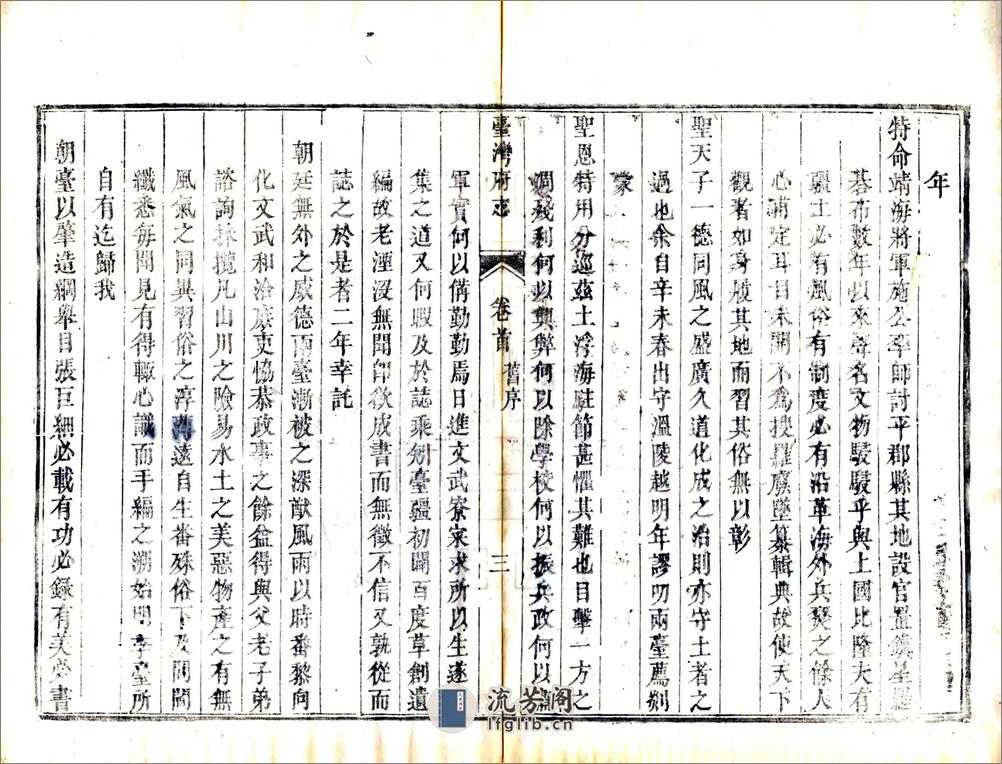 年
特命靖海將軍施公率師討平郡縣其地設官置鎮星羅
碁布數年以來聲名文物駸駸乎與上國比隆夫有
疆土必有風俗有制度必有沿革海外兵燹之餘人
心甫定耳目未開不為搜羅廢墜纂輯典故使天下
觀者如身履其地而習其俗無以彰
聖天子一德同風之盛廣久道化成之治則亦守土者之
過也余自辛未春出守溫陵越明年謬叨兩臺薦剡
蒙
聖恩特用分巡茲土浮海駐節甚懼其難也目擊一方之
凋殘利何以興弊何以除學校何以振兵政何以
臺灣府志 卷首 舊序 三
軍實何以備勤勤焉日進文武寮寀求所以生遂
集之道又何暇及於誌乘剏臺疆初闢百度草創遺
編故老湮沒無聞即欲成書而無徵不信又孰從而
誌之於是者二年幸託
朝廷無外之威德而臺漸被之深猷風雨以時番黎向
化文武和洽庶吏恊恭政事之餘益得與父老子弟
諮詢採攬凡山川之險易水土之美惡物產之有無
風氣之同異習俗之淳薄遠自生番殊俗下及閭閻
纖悉每聞見有得輙心識而手編之溯始明季臺所
自有迄歸我
朝臺以肇造綱舉目張巨細必載有功必錄有美必書
流芳閣
lfglib.cn